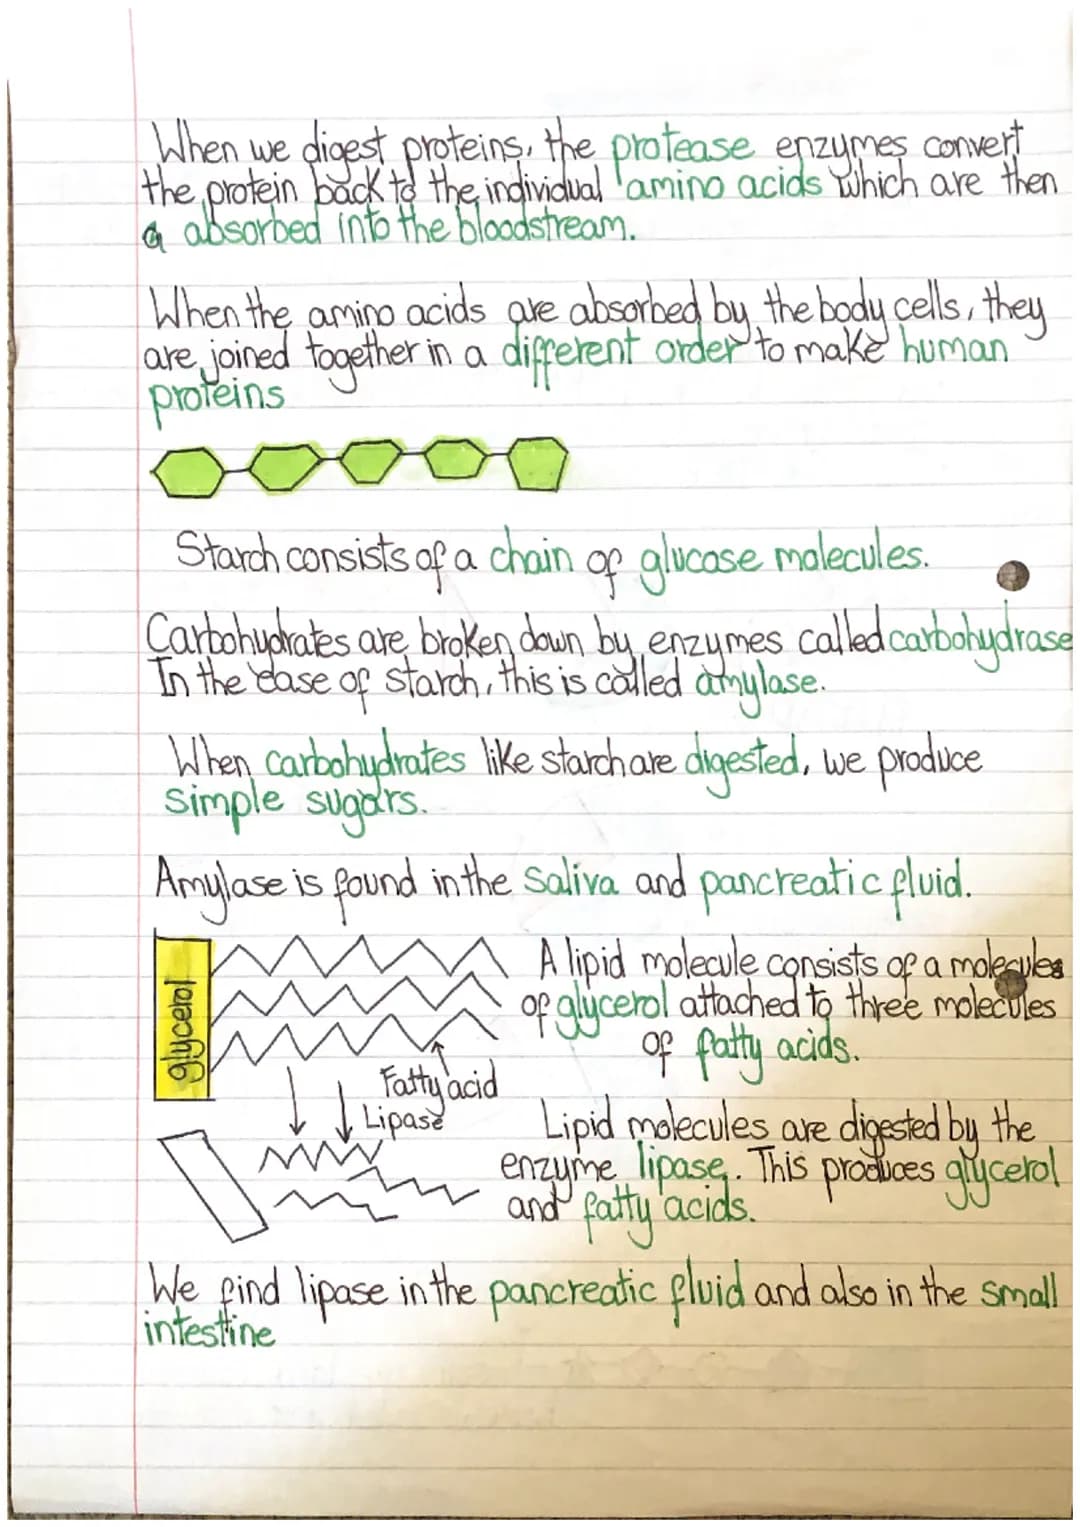 When we digest proteins, the protease enzymes convert
the protein back to the individual amino acids which are then
absorbed into the bloodstream.
When the amino acids are absorbed by the body cells, they
are joined together in a different order to make human
proteins
Starch consists of a chain of glucose molecules.
Carbohydrates are broken down by enzymes called carbohydrase
In the case of starch, this is called amylase.
When carbohydrates like starch are digested, we produce
simple sugars.
Amylase is found in the saliva and pancreatic fluid.
glycerol
A lipid molecule consists of a molecules
of glycerol attached to three molecules
of fatty acids.
Fatty acid
Lipase
Lipid molecules are digested by the
enzyme lipase. This produces glycerol
and fatty acids.
We find lipase in the pancreatic fluid and also in the small
intestine